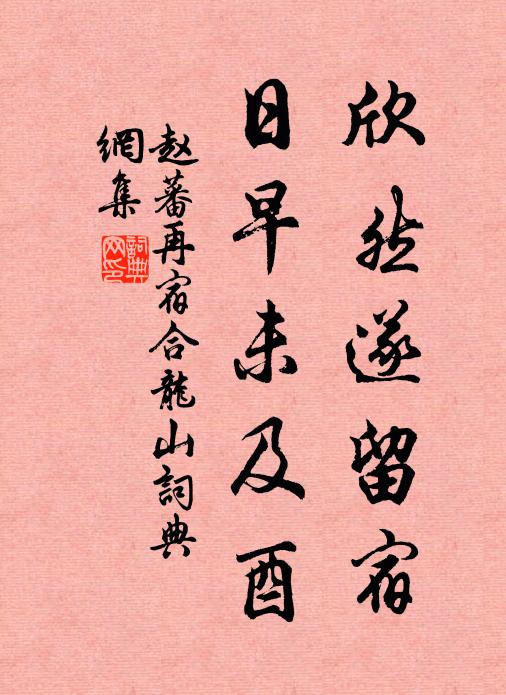 欣然遂留宿
日早未及酉
赵蕃再宿合龍山詞典
網集
詞典网印